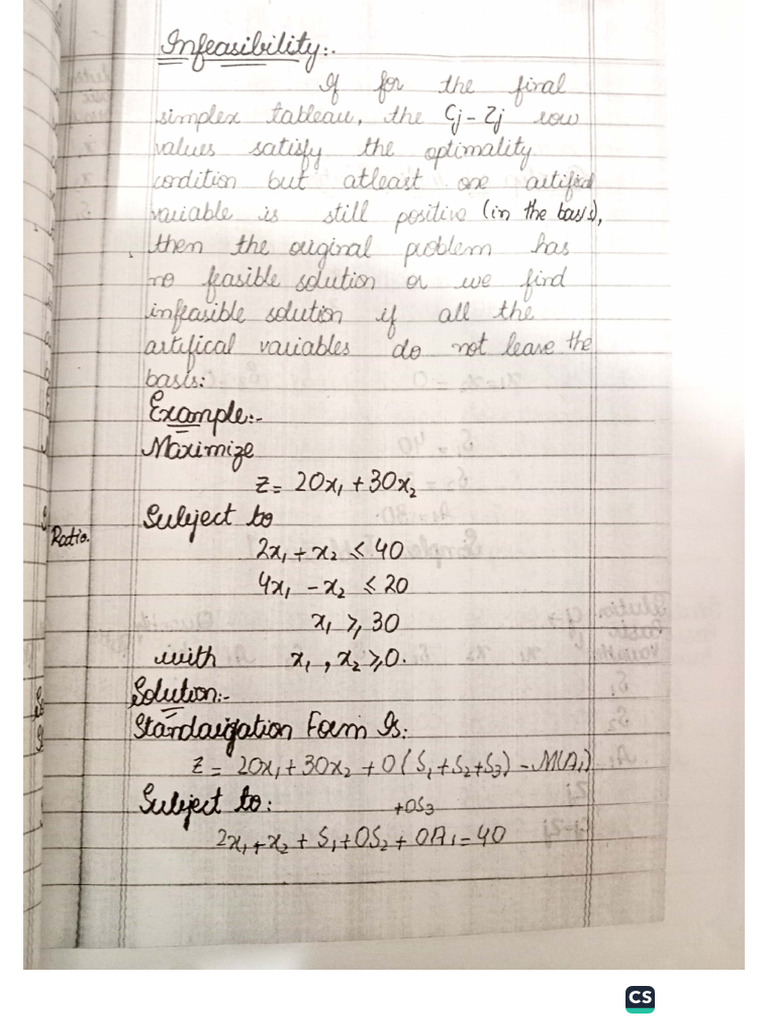 Infeasibility:-
If for the final
simplex tableau, the Cj - Zj row
values satisfy the optimality
condition but atleast one artificial
variable is still positive (in the basis),
then the original problem has
no feasible solution or we find
infeasible solution if all the
artifical variables do not leave the
basis:
Example:-
Maximize
Z = 20x₁ + 30x₂
Subject to
Ratio.
2x₁ + x₂ ≤ 40
4x₁ - x₂ ≤ 20
x₁ ≥ 30
with x₁ , x₂ ≥ 0.
Solution:-
Standarization Form Is:
Z = 20x₁ + 30x₂ + 0(S₁ + S₂ + S₃) - M(A₁)
Subject to: +0S₃
2x₁ + x₂ + S₁ + 0S₂ + 0A₁ = 40
CS